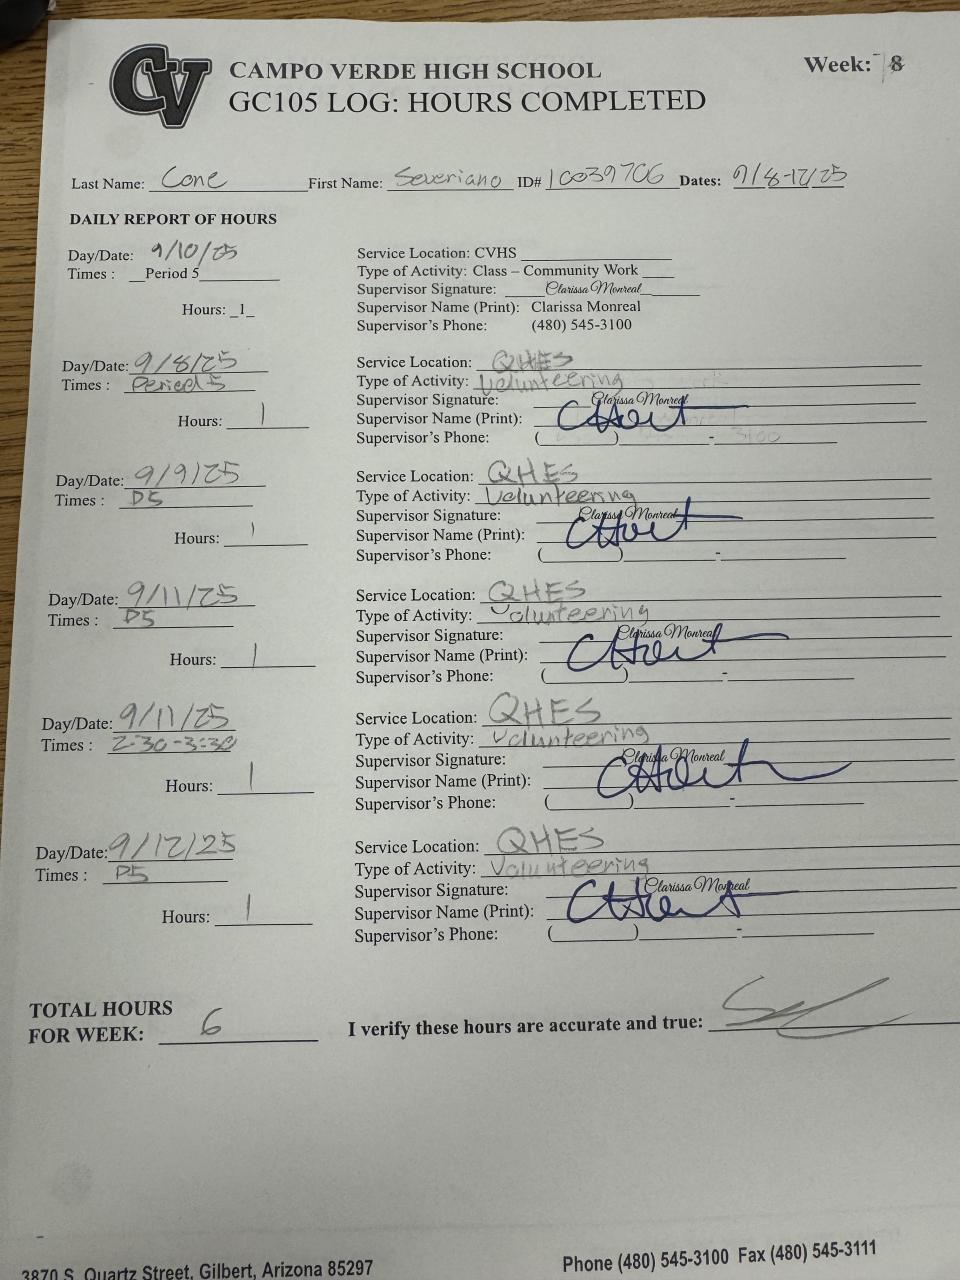 CV
CAMPO VERDE HIGH SCHOOL
Week: 8
GC105 LOG: HOURS COMPLETED
Last Name: Cone First Name: Severiano ID# 10039706 Dates: 9/8-12/25
DAILY REPORT OF HOURS
Day/Date: 9/10/25
Times : Period 5
Hours: 1
Service Location: CVHS
Type of Activity: Class – Community Work
Supervisor Signature: Clarissa Monreal
Supervisor Name (Print): Clarissa Monreal
Supervisor's Phone: (480) 545-3100
Day/Date: 9/8/25
Times : Period 5
Hours: 1
Service Location: QHES
Type of Activity: Volunteering
Supervisor Signature: Clarissa Monreal
Supervisor Name (Print):
Supervisor's Phone: ( ) -
Day/Date: 9/9/25
Times : P5
Hours: 1
Service Location: QHES
Type of Activity: Volunteering
Supervisor Signature: Clarissa Monreal
Supervisor Name (Print):
Supervisor's Phone: ( ) -
Day/Date: 9/11/25
Times : P5
Hours: 1
Service Location: QHES
Type of Activity: Volunteering
Supervisor Signature: Clarissa Monreal
Supervisor Name (Print):
Supervisor's Phone: ( ) -
Day/Date: 9/11/25
Times : 2:30-3:30
Hours: 1
Service Location: QHES
Type of Activity: Volunteering
Supervisor Signature: Clarissa Monreal
Supervisor Name (Print):
Supervisor's Phone: ( ) -
Day/Date: 9/12/25
Times : P5
Hours: 1
Service Location: QHES
Type of Activity: Volunteering
Supervisor Signature: Clarissa Monreal
Supervisor Name (Print):
Supervisor's Phone: ( ) -
TOTAL HOURS
FOR WEEK: 6
I verify these hours are accurate and true:
3870 S. Quartz Street, Gilbert, Arizona 85297
Phone (480) 545-3100 Fax (480) 545-3111